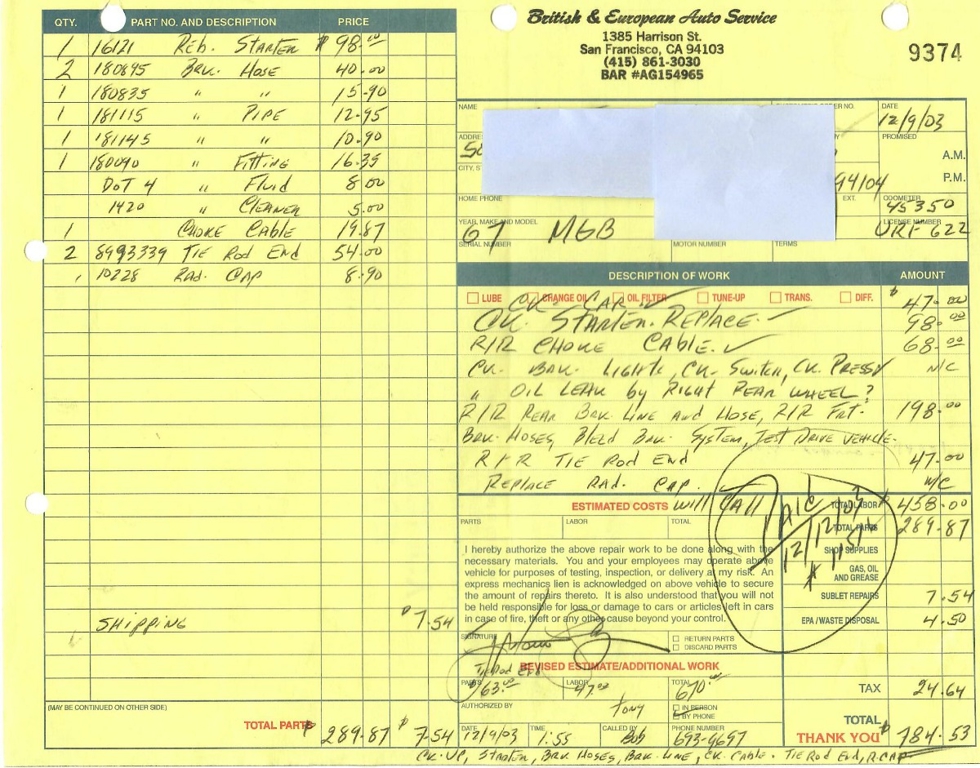 QTY. PART NO. AND DESCRIPTION PRICE
1 16121 Reb. Starter $98.00
2 180895 Brk. Hose 40.00
1 180835 " " 15.90
1 181115 " Pipe 12.95
1 181145 " " 10.90
1 180090 " Fitting 16.35
DOT 4 " Fluid 8.00
1420 " Cleaner 5.00
1 Choke Cable 19.87
2 8993339 Tie Rod End 54.00
1 10228 Rad. Cap 8.90
Shipping $7.54
(MAY BE CONTINUED ON OTHER SIDE)
TOTAL PARTS $289.87 $7.54
British & European Auto Service
1385 Harrison St.
San Francisco, CA 94103
(415) 861-3030
BAR #AG154965
9374
NAME
DATE
12/9/03
PROMISED
A.M.
P.M.
94104
HOME PHONE
EXT.
ODOMETER
45350
YEAR MAKE AND MODEL
67 MGB
LICENSE NUMBER
URF 622
SERIAL NUMBER MOTOR NUMBER TERMS
DESCRIPTION OF WORK AMOUNT
LUBE CHANGE OIL OIL FILTER TUNE-UP TRANS. DIFF.
CK. CAR. ✓ $47.00
CK. Starter. Replace ✓ 98.00
R/R Choke Cable. ✓ 68.00
CK. Brk. Lights, CK. Switch, CK. Press ✓ N/C
" Oil Leak by Right Rear Wheel?
R/R Rear Brk. Line and Hose, R/R Frt. 198.00
Brk. Hoses, Bleed Brk. System, Test Drive Vehicle.
R/R Tie Rod End 47.00
Replace Rad. Cap. N/C
ESTIMATED COSTS will Call
PARTS LABOR TOTAL
TOTAL LABOR $458.00
TOTAL PARTS 289.87
SHOP SUPPLIES
GAS, OIL AND GREASE
SUBLET REPAIRS 7.54
EPA / WASTE DISPOSAL 4.50
I hereby authorize the above repair work to be done along with the
necessary materials. You and your employees may operate above
vehicle for purposes of testing, inspection, or delivery at my risk. An
express mechanics lien is acknowledged on above vehicle to secure
the amount of repairs thereto. It is also understood that you will not
be held responsible for loss or damage to cars or articles left in cars
in case of fire, theft or any other cause beyond your control.
SIGNATURE
RETURN PARTS
DISCARD PARTS
Tie Rod End
REVISED ESTIMATE/ADDITIONAL WORK
PARTS LABOR TOTAL
47.00 670.00
AUTHORIZED BY
Tony
IN PERSON
BY PHONE
DATE TIME CALLED BY PHONE NUMBER
12/9/03 1:55 Bob 693-9697
TAX 24.64
TOTAL
THANK YOU $784.53
CK-UP, Starter, Brk. Hoses, Brk. Line, CK. Cable. Tie Rod End, R.Cap